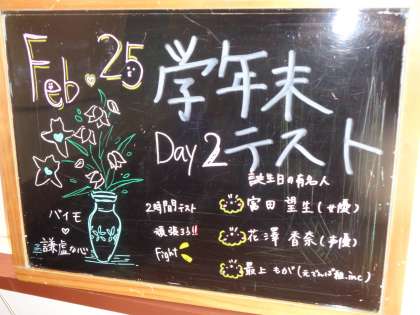 Feb. 25
学年末
Day 2 テスト
誕生日の有名人
バイモ
♡
謙虚な心
2時間テスト
頑張ろう!!
Fight
富田 望生(女優)
花澤 香奈(声優)
最上 もが(元でんぱ組.inc)